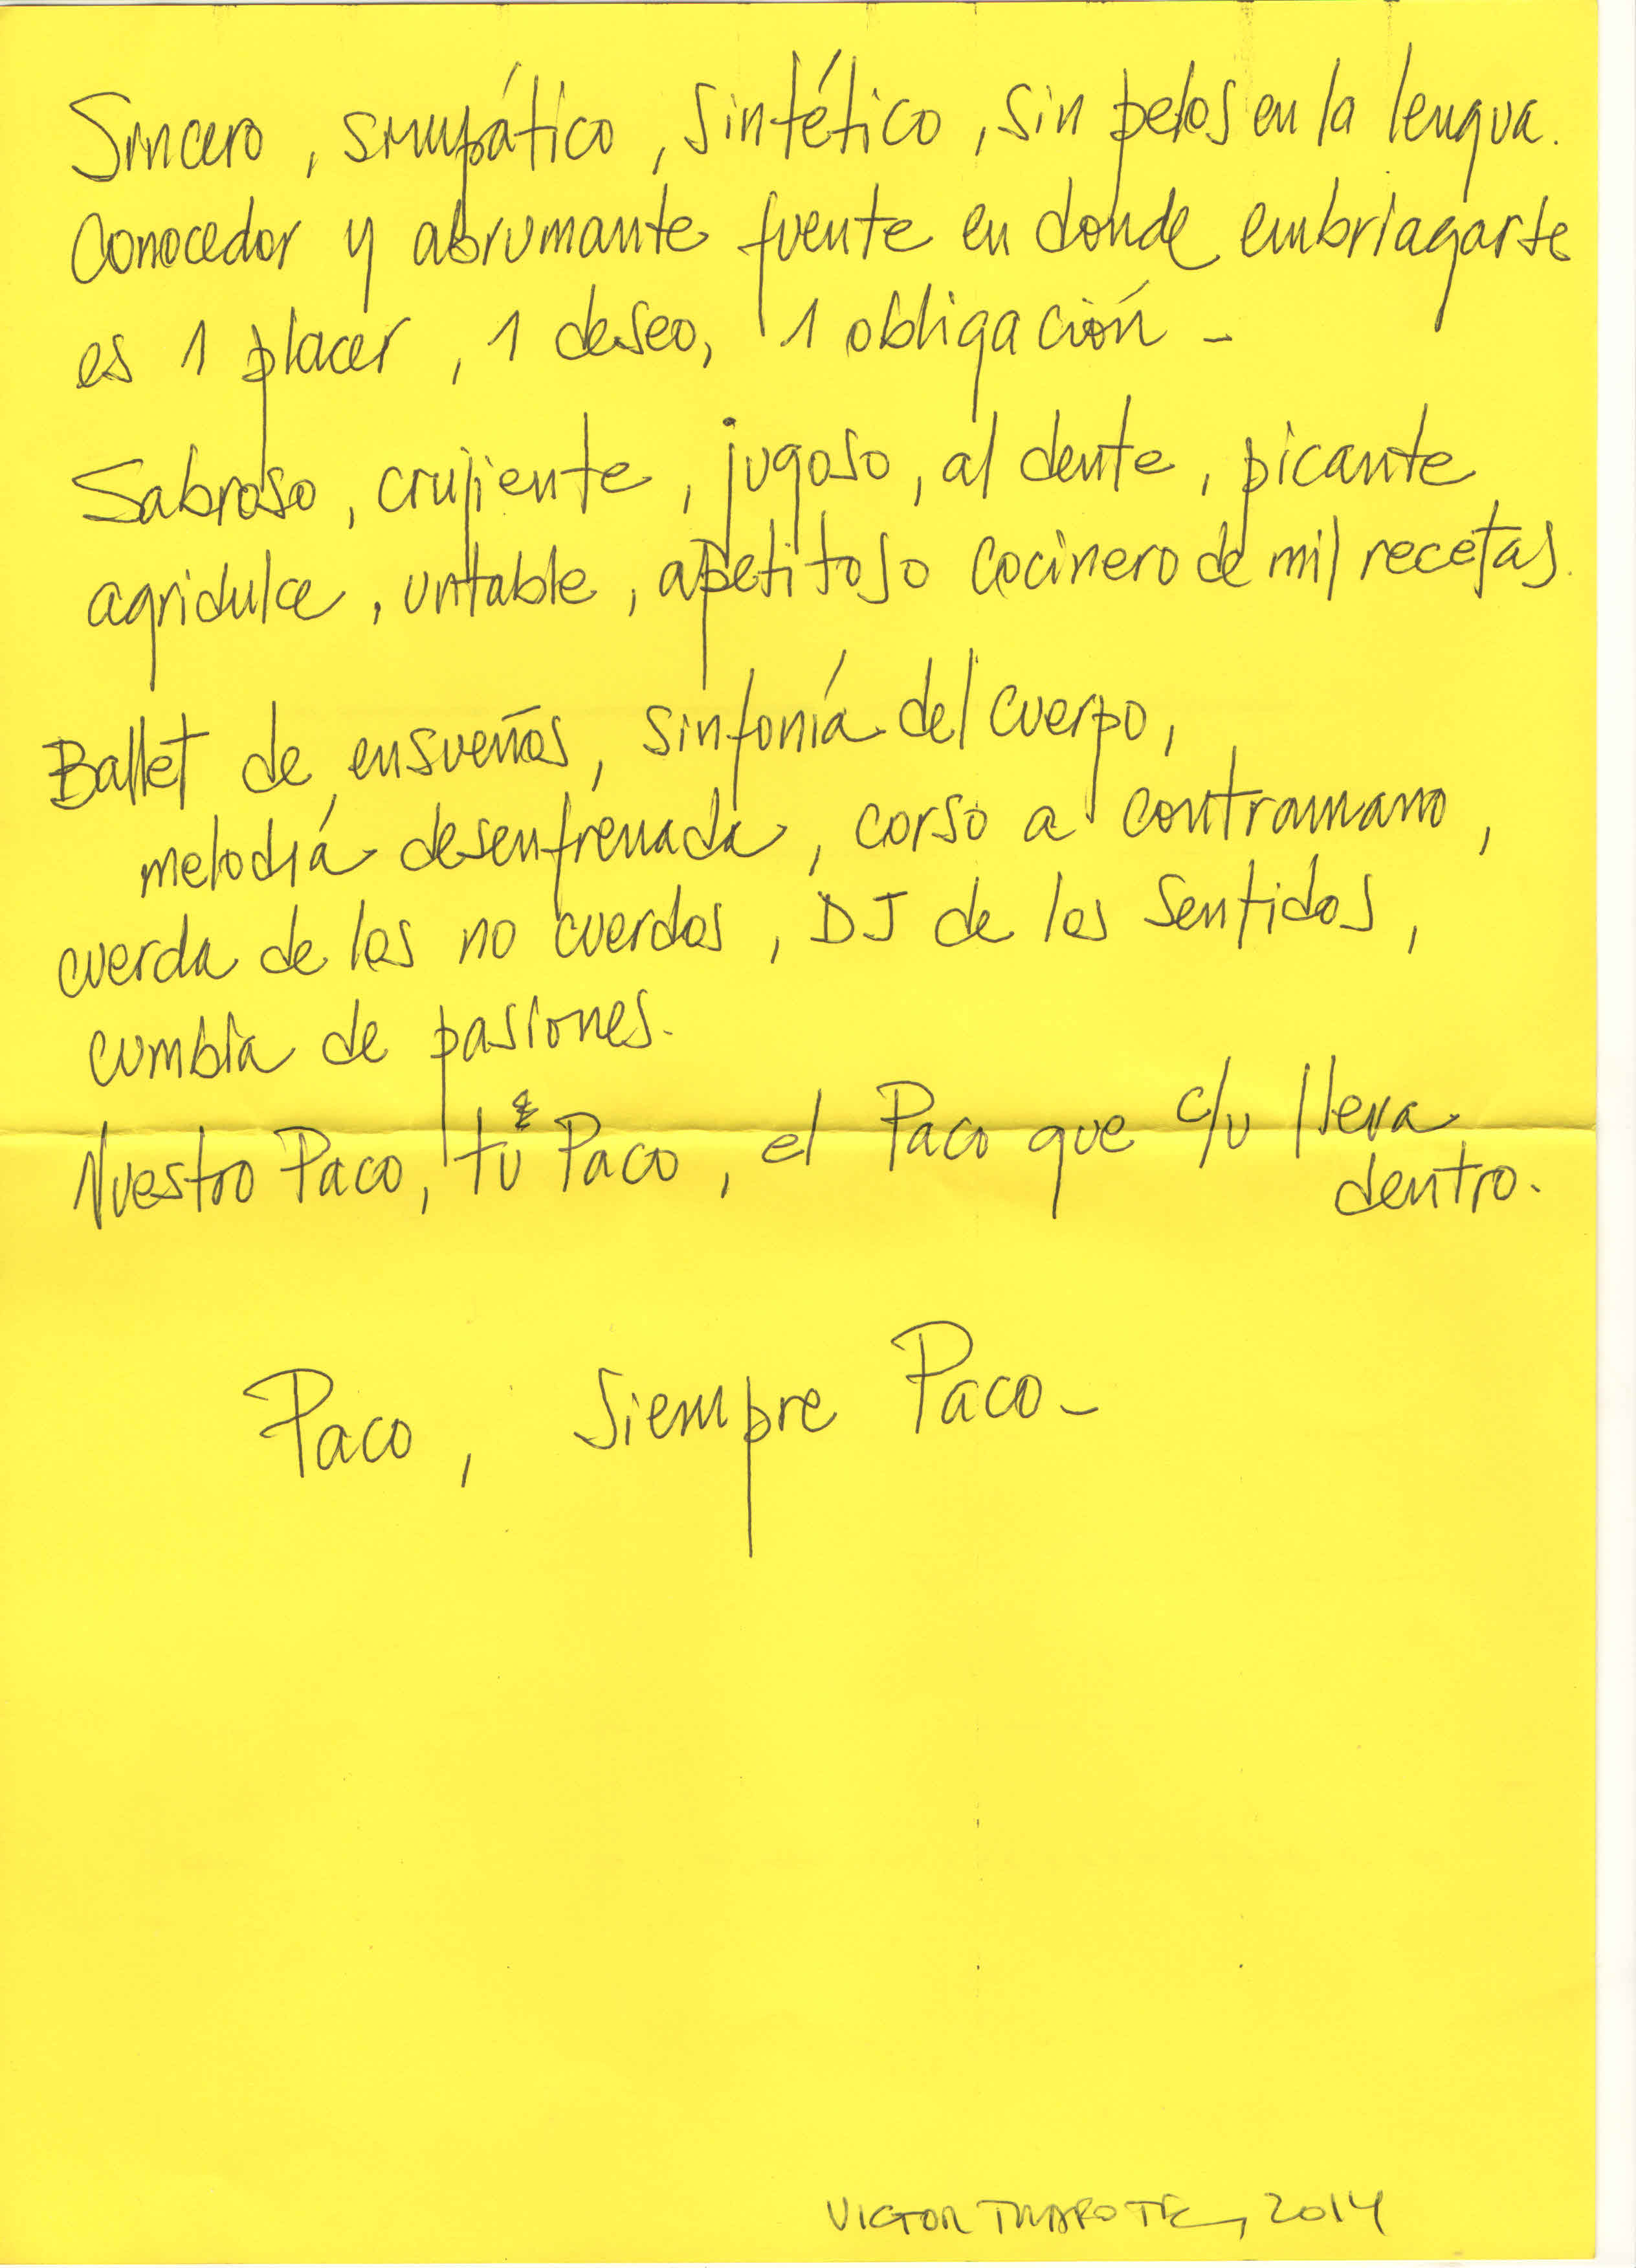 Sincero, simpático, sintético, sin pelos en la lengua.
Conocedor y abrumante fuente en donde embriagarte
es 1 placer, 1 deseo, 1 obligación -
Sabroso, crujiente, jugoso, al dente, picante,
agridulce, untable, apetitoso cocinero de mil recetas.
Ballet de ensueños, sinfonía del cuerpo,
melodía desenfrenada, corso a contramano,
cuerda de los no cuerdos, DJ de los sentidos,
cumbia de pasiones.
Nuestro Paco, tu Paco, el Paco que c/u lleva
dentro.
Paco, siempre Paco -
VICTOR 2014